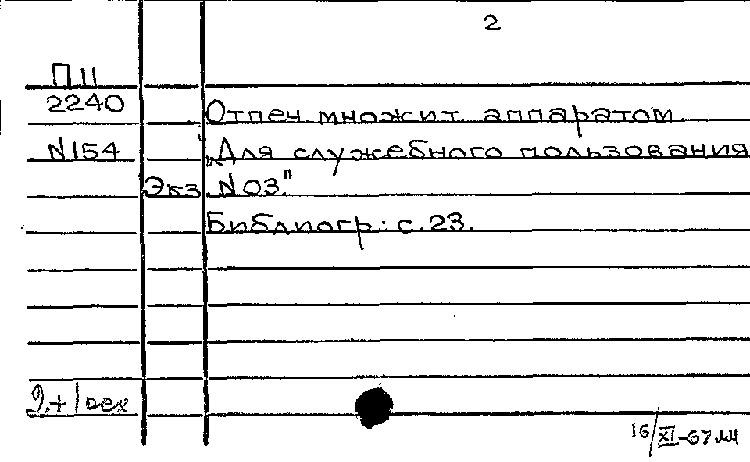 2
П11
2240
Отпеч. множит. аппаратом.
N154
„Для служебного пользования
Экз. N03."
Библиогр.: с. 23.
16/XI-67